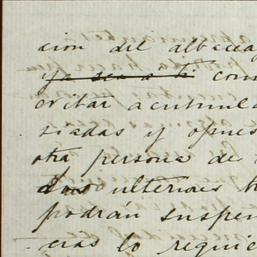 cion del albacea
ya sea a ti com
evitar acumula
siadas y opues
otra persona de
dos ulteriores h
podrán suspen
cias lo requie